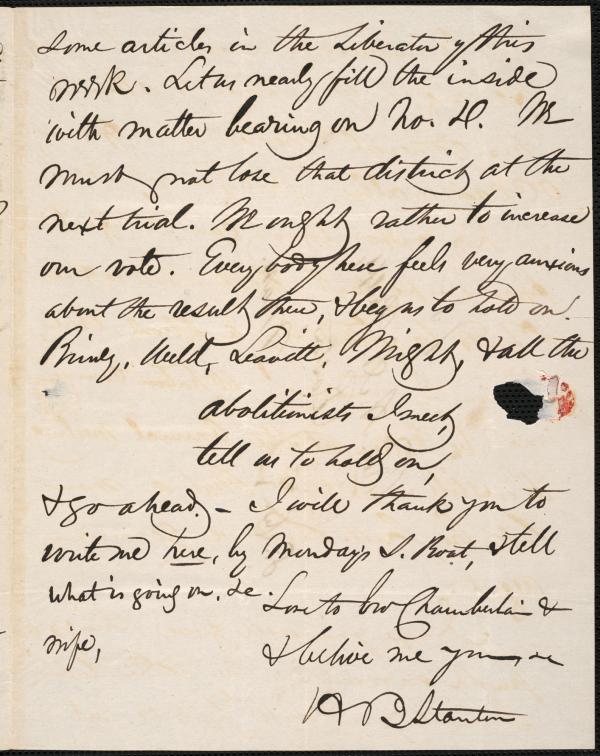 some articles in the Liberator of this
week. Let us nearly fill the inside
with matter bearing on No. 4. We
must not lose that district at the
next trial. We ought rather to increase
our vote. Every body here feels very anxious
about the result there, & beg us to hold on.
Birney, Weld, Leavitt, Wright, & all the
abolitionists I meet,
tell us to hold on,
& go ahead. – I will thank you to
write me here, by Monday's S. Boat, & tell
what is going on, &c.
Love to bro Chamberlain &
wife,
& believe me yours &c
H B Stanton